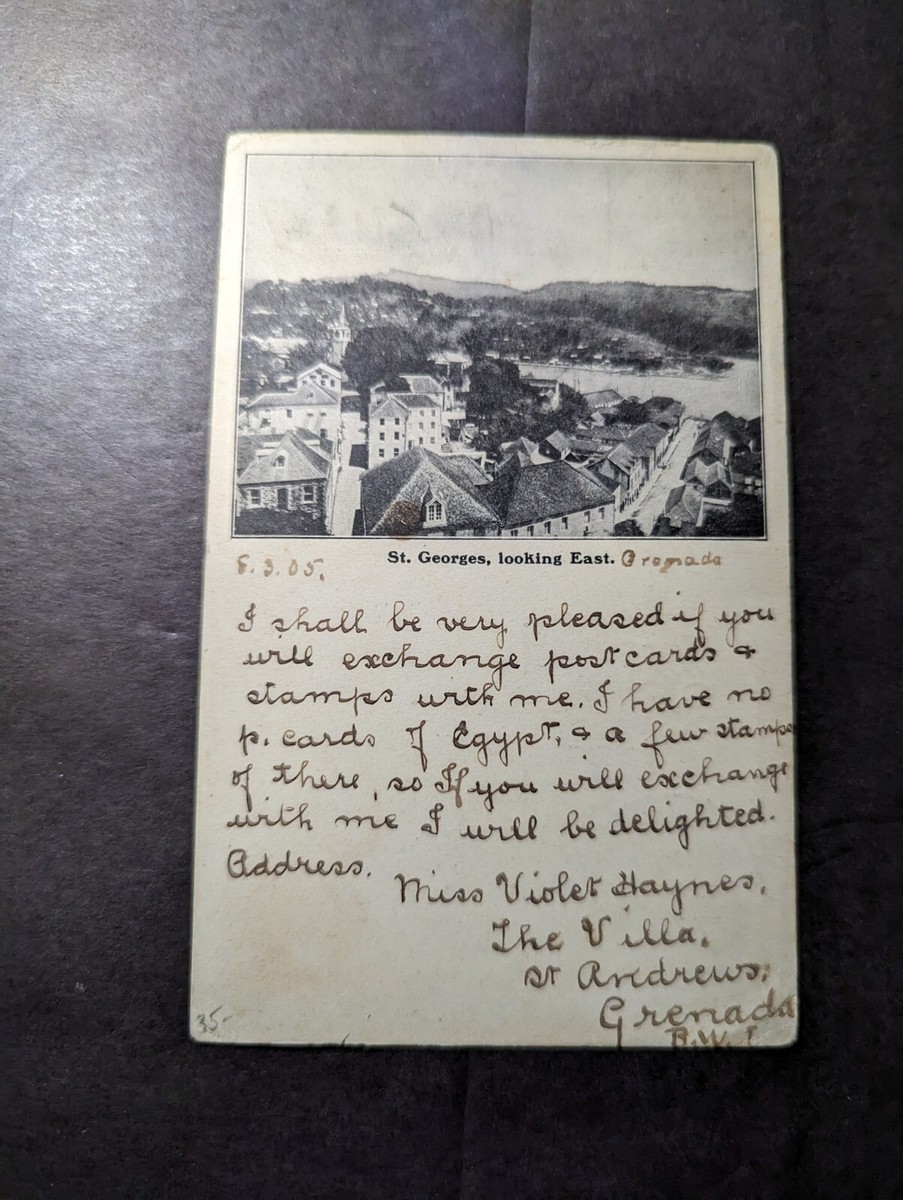 St. Georges, looking East. Grenada
8.3.05.
I shall be very pleased if you
will exchange postcards &
stamps with me. I have no
p. cards of Egypt, & a few stamps
of there, so If you will exchange
with me I will be delighted.
Address.
Miss Violet Haynes.
The Villa.
St Andrews.
Grenada
B.W.I
35-